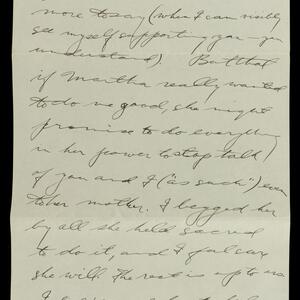 more to say (when I can really
see myself supporting you - you
understand). But that
if Martha really wanted
to do me good, she might
promise to do everything
in her power to stop talk
of you and I ("as such") even
to her mother. I begged her
by all she held sacred
to do it, and I fancy
she will. The rest is up to